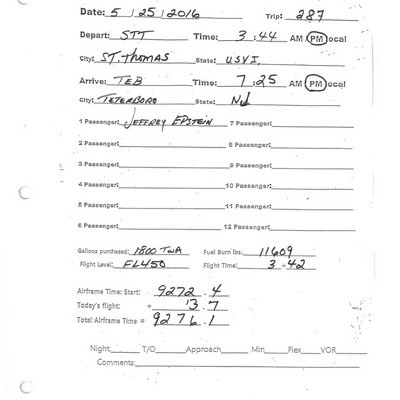 Date: 5 / 25 / 2016 Trip: 287
Depart: STT Time: 3 :44 AM PM ocal
City: ST. THOMAS State: USVI.
Arrive: TEB Time: 7 :25 AM PM ocal
City: TETERBORO State: NJ
1 Passenger: JEFFREY EPSTEIN 7 Passenger:
2 Passenger: 8 Passenger:
3 Passenger: 9 Passenger:
4 Passenger: 10 Passenger:
5 Passenger: 11 Passenger:
6 Passenger: 12 Passenger:
Gallons purchased: 1800 TWA Fuel Burn lbs. 11609
Flight Level: FL450 Flight Time: 3 :42
Airframe Time: Start: 9272 .4
Today's flight: + 3 .7
Total Airframe Time = 9276.1
Night: T/O Approach Min Flex VOR
Comments: